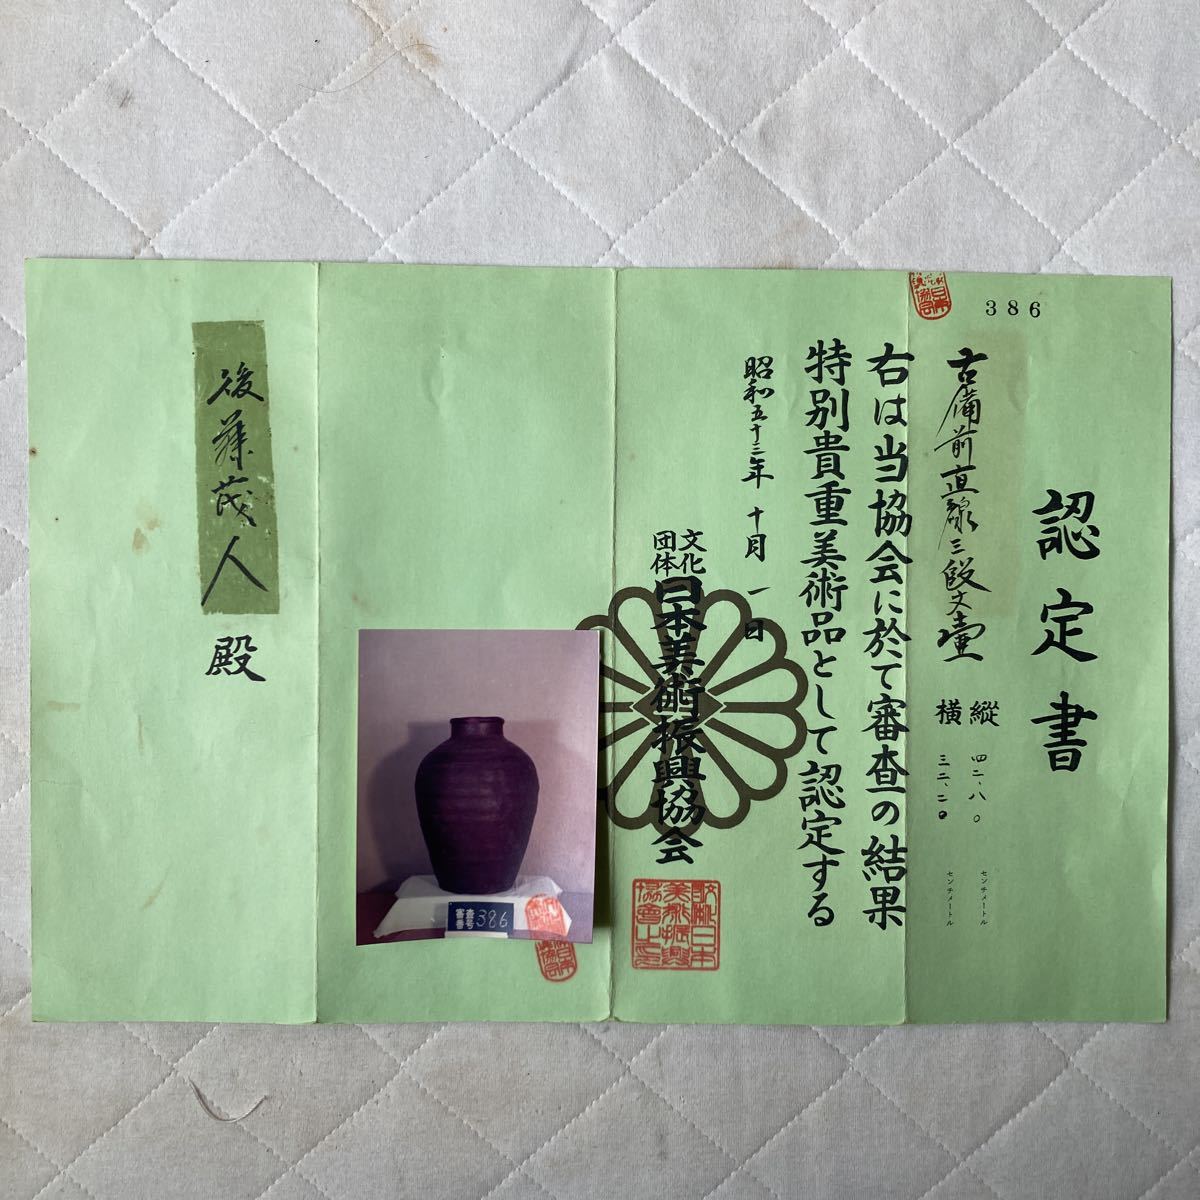 386
認定書
古備前直線三段文壷
縦 四二、八〇 センチメートル
横 三二、二〇 センチメートル
右は当協会に於て審査の結果
特別貴重美術品として認定する
昭和五十三年 十月 一日
文化団体 日本美術振興協会
審査番号 386
後藤茂人 殿